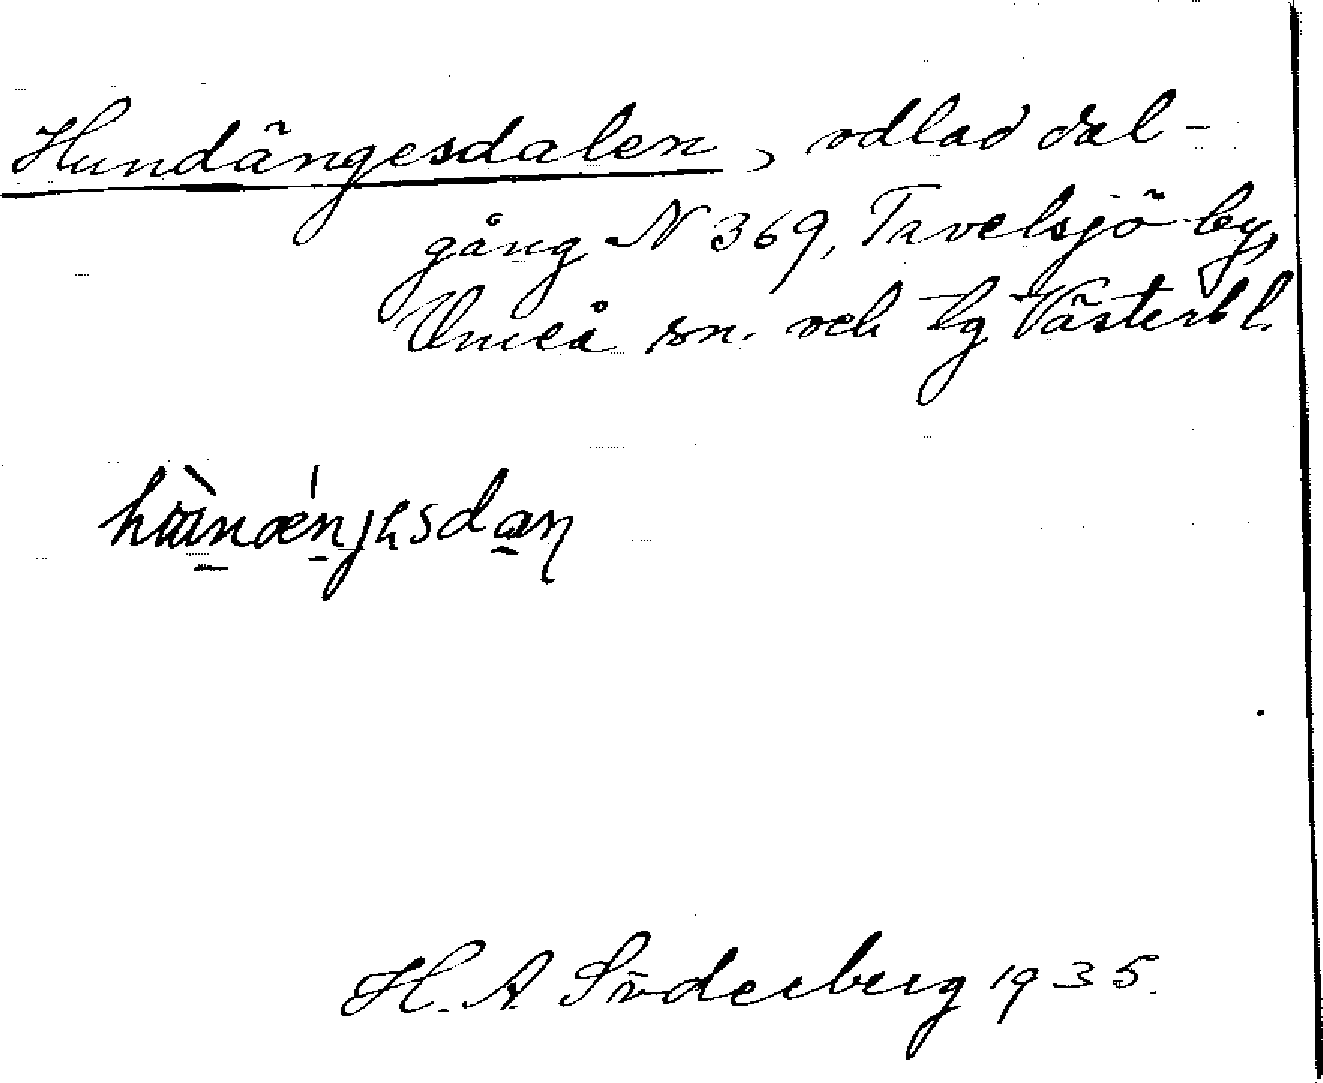 Hundängesdalen, odlad dal-
gång N 369, Tavelsjö by,
Umeå sn. och tg Västerb l.
H. A Söderberg 1935.